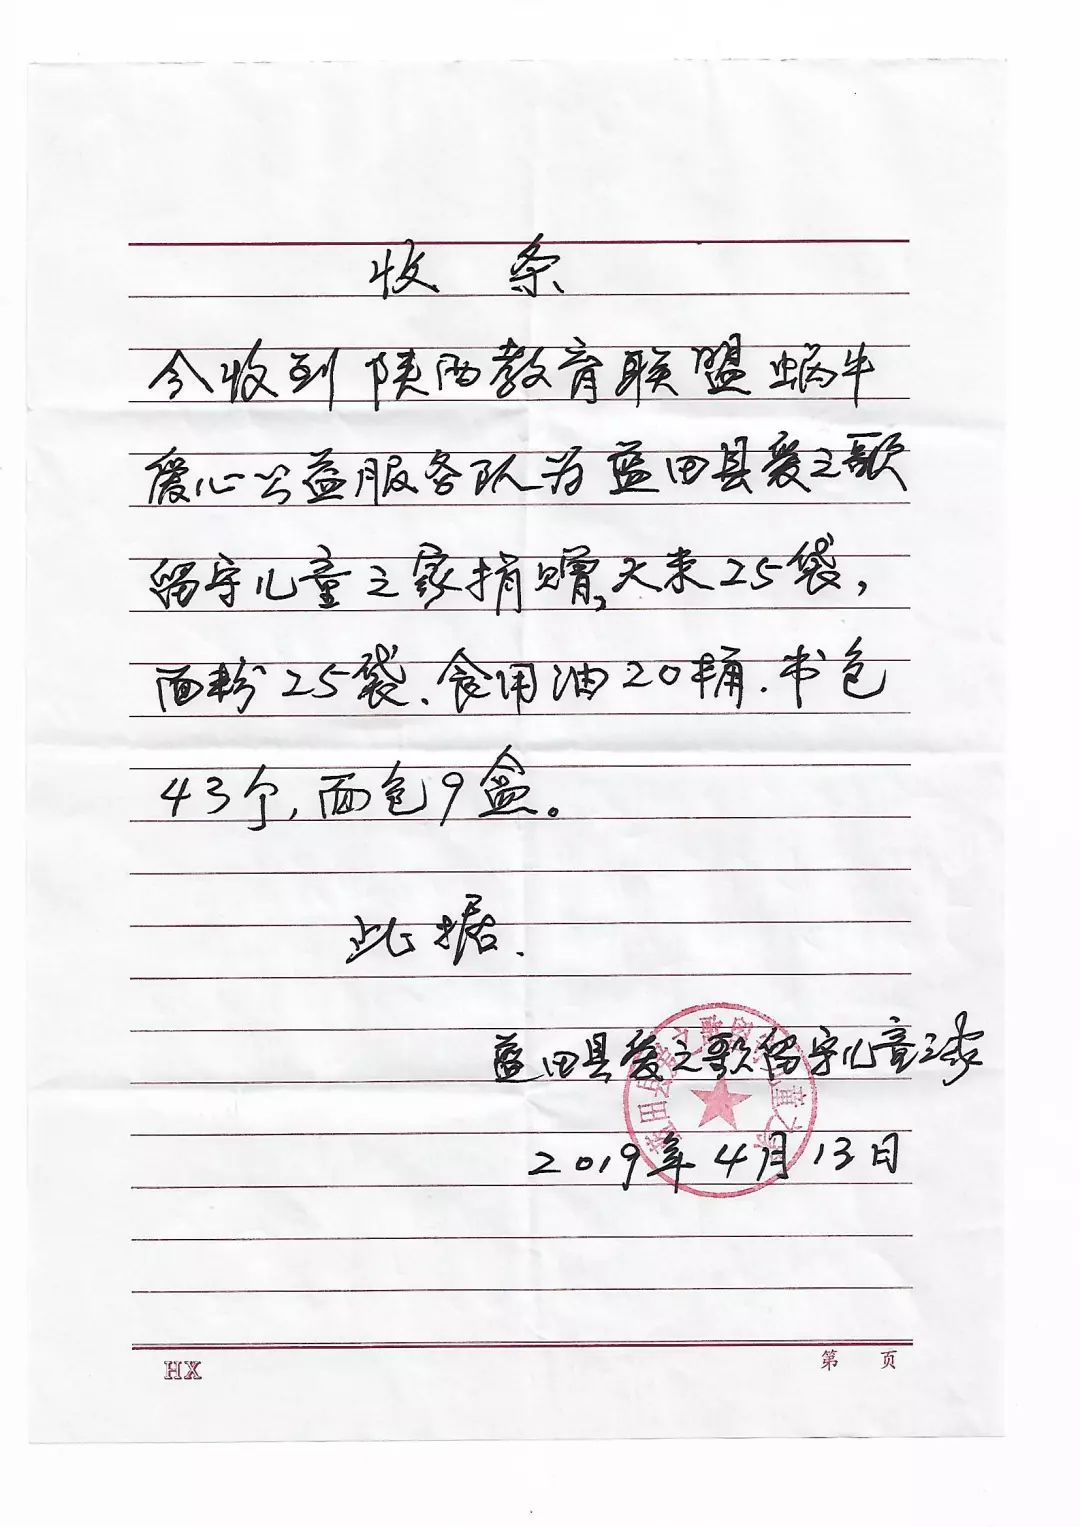 收 条
今收到陕西教育联盟蜗牛
爱心公益服务队为蓝田县爱之歌
留守儿童之家捐赠,大米25袋,
面粉25袋、食用油20桶、书包
43个,面包9盒。
此据.
蓝田县爱之歌留守儿童之家
蓝田县爱之歌留守儿童之家
2019年4月13日
HX
第 页